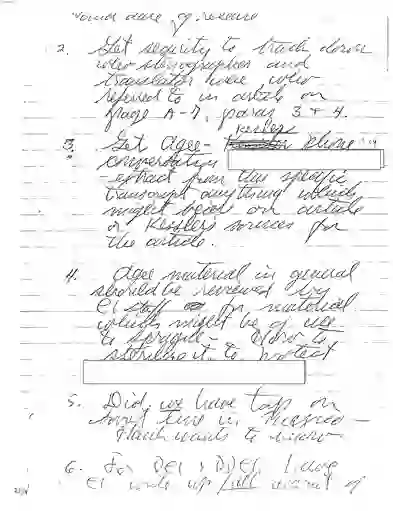 2. Get security to track down
who stenographer and
translator were, who
referred to in article on
page A-7, paras 3 + 4.
3. Get Agee - Kessler phone
conversation
- extract from this specific
transcript anything which
might bear on article
or Kessler's sources for
the article.
4. Agee material in general
should be reviewed by
CI staff for material
which might be of use
to
to protect
5. Did we have taps on
Soviet line in Mexico -
wants to know
6. For DCI, DDCI, I
CI of